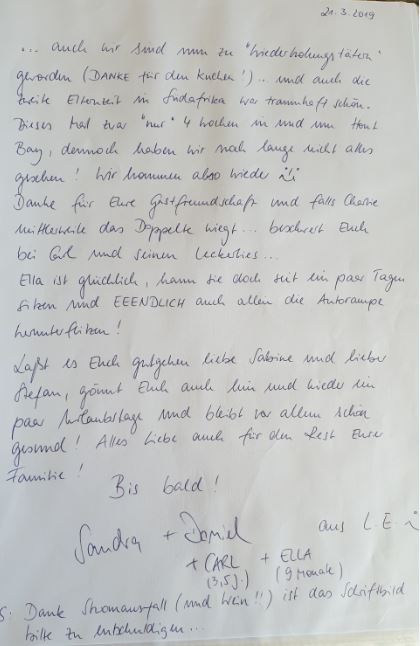 21.3.2019
... auch wir sind nun zu "Wiederholungstätern"
geworden (DANKE für den Kuchen!)... und auch die
zweite Elternzeit in Südafrika war traumhaft schön.
Dieses Mal zwar "nur" 4 Wochen in und um Hout
Bay, dennoch haben wir noch lange nicht alles
gesehen! Wir kommen also wieder
Danke für Eure Gastfreundschaft und falls
mittlerweile das Doppelte wiegt... beschwert Euch
bei Carl und seinen Leckerlies...
Ella ist glücklich, kann sie doch seit ein paar Tagen
sitzen und EEENDLICH auch allein die Autorampe
herunterflitzen!
Laßt es Euch gutgehen liebe Sabine und lieber
Stefan, gönnt Euch auch hin und wieder ein
paar Urlaubstage und bleibt vor allem schön
gesund! Alles Liebe auch für den Rest Eurer
Familie!
Bis bald!
Sandra + Daniel aus L.E.
+ CARL + ELLA
(3,5 J.) (9 Monate)
S: Danke Stromausfall (und Wein!!) ist das Schriftbild
bitte zu entschuldigen...